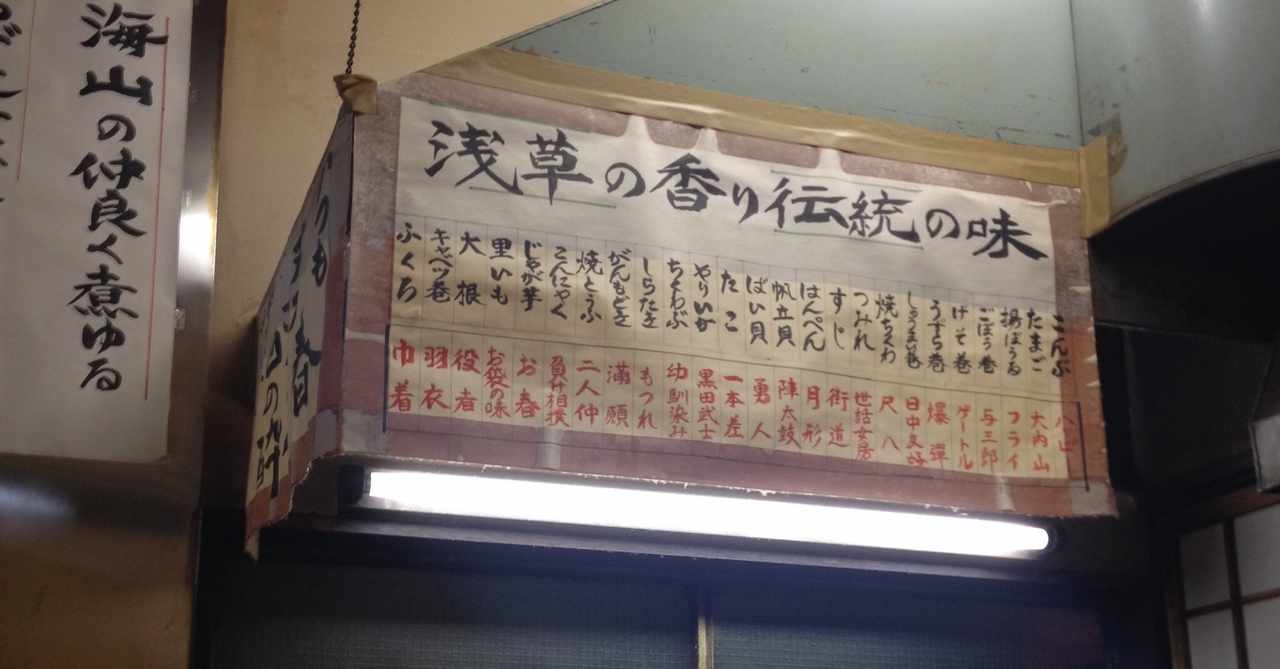 浅草の香り伝統の味
こんぶ
たまご 大内山
揚ぼうる フライ
ごぼう巻 与三郎
げそ巻 ゲートル
うずら巻 爆弾
しゅうまい巻 日中友好
焼ちくわ 尺八
つみれ 世話女房
すじ 街道
はんぺん 月形
帆立貝 陣太鼓
ばい貝 勇人
たこ 一本差
やりいか 黒田武士
ちくわぶ 幼馴染み
しらたき もつれ
がんもどき 満願
焼とうふ 二人仲
こんにゃく 負け相撲
じゃが芋 お春
里いも お袋の味
大根 役者
キャベツ巻 羽衣
ふくろ 巾着
海山の仲良く煮ゆる